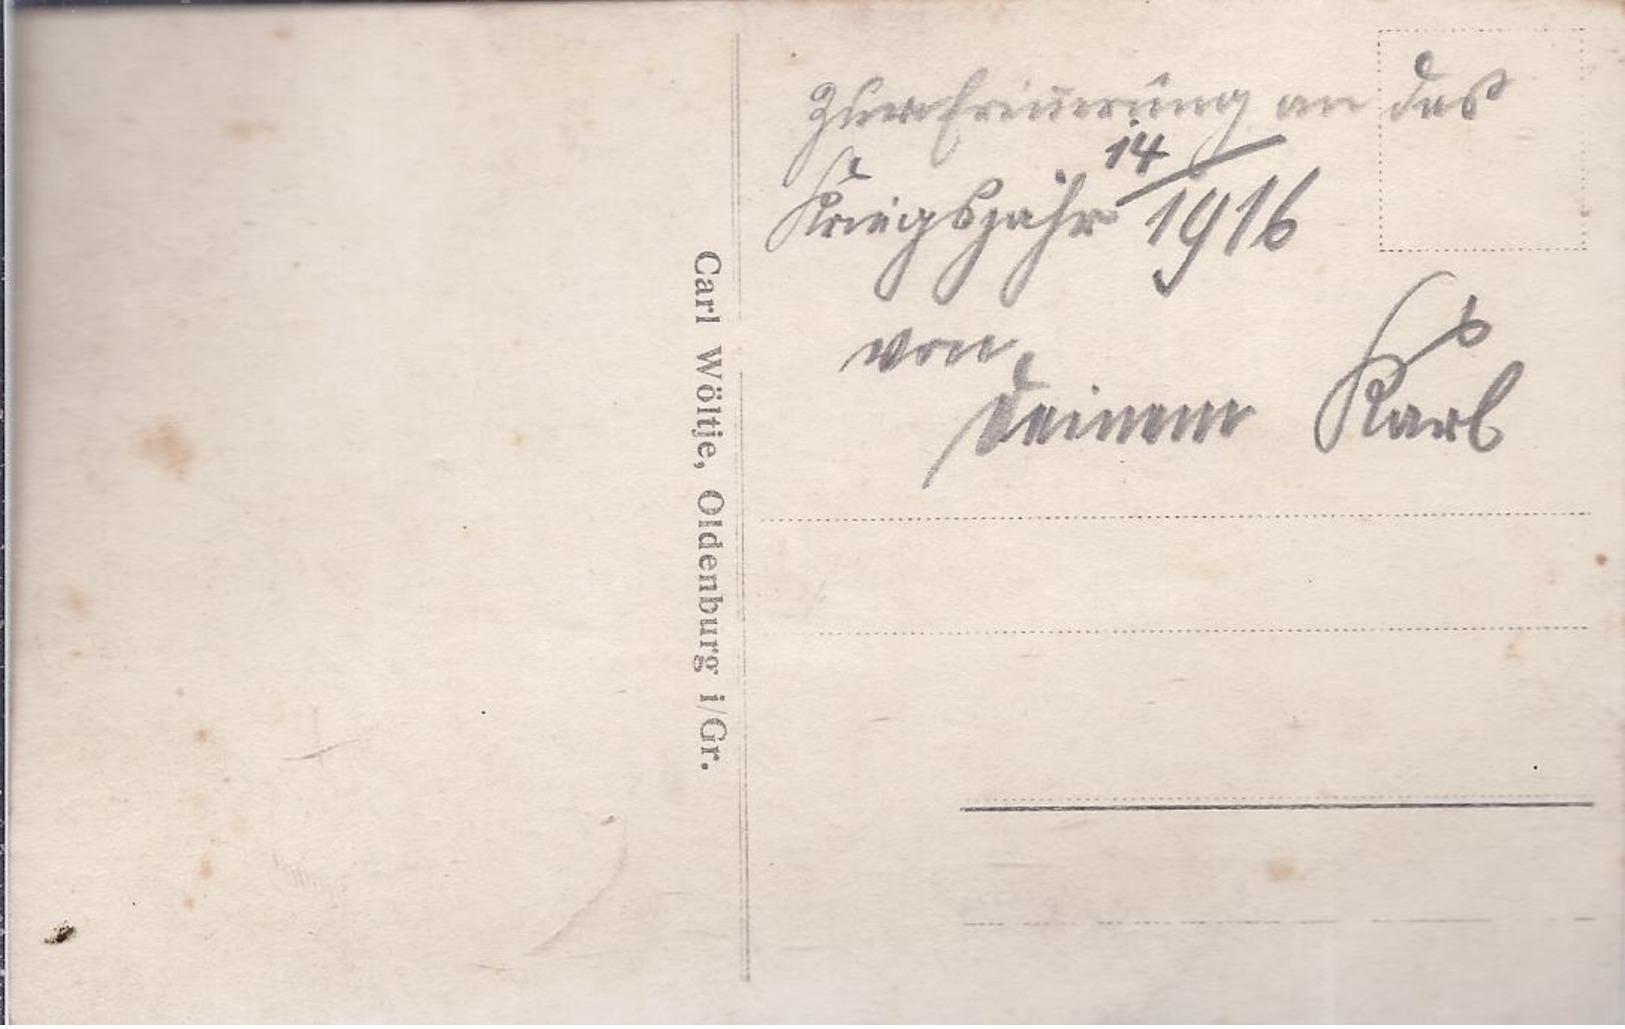 Zur Erinnerung an das
Kriegsjahr 14/1916
von
Deinem Karl
Carl Wöltje, Oldenburg i/Gr.